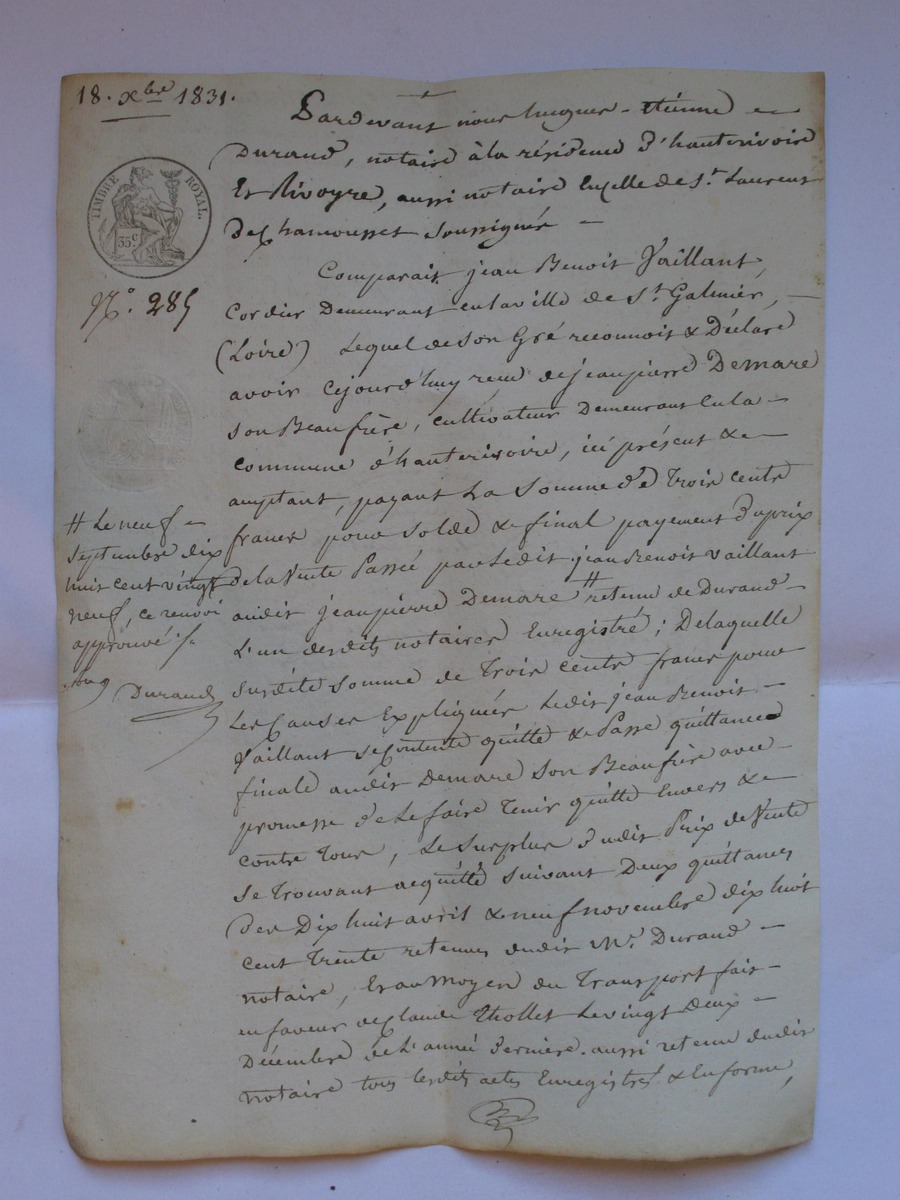 18. xbre 1831.
Pardevant nous hugues - étienne
Durand, notaire à la résidence d'hauterivoire
Et Rivoyre, aussi notaire En celle de St. Laurent
de Chamousset soussignés
TIMBRE ROYAL.
35c
N°. 285
Comparait jean Benoit Vaillant,
Cordier Demeurant en la ville de St. Galmier,
(Loire) Lequel de son Gré reconnoit & Déclare
avoir Cejourd'huy reçu de jean pierre Demare
son Beaufrère, cultivateur Demeurant En la
commune d'hauterivoire, ici présent &
acceptant, payant La somme de Trois cents
francs pour solde & final payement du prix
de la Vente Passée par Ledit jean Benoit Vaillant
audit jean pierre Demare # retenue de Durand
L'un desdits notaires Enregistré ; De laquelle
susdite somme de Trois cents francs pour
Les Causes Expliquées Ledit jean Benoit
Vaillant se Contente quitte & Passe quittance
finale audit Demare son Beaufrère avec
promesse de Le faire Tenir quitte Envers &
contre Tous, Le surplus dudit Prix de Vente
se Trouvant acquitté suivant Deux quittances
des Dix huit avril & neuf novembre dix huit
cent Trente retenues dudit Me. Durand
notaire, Et au Moyen du Transport fait
en faveur de Claude Thollet Le vingt Deux
Décembre de L'année dernière. aussi retenu dudit
notaire tous lesdits actes Enregistrés & En forme,
# Le neuf
septembre dix
huit cent vingt
neuf, ce renvoi
approuvé ./.
Durand